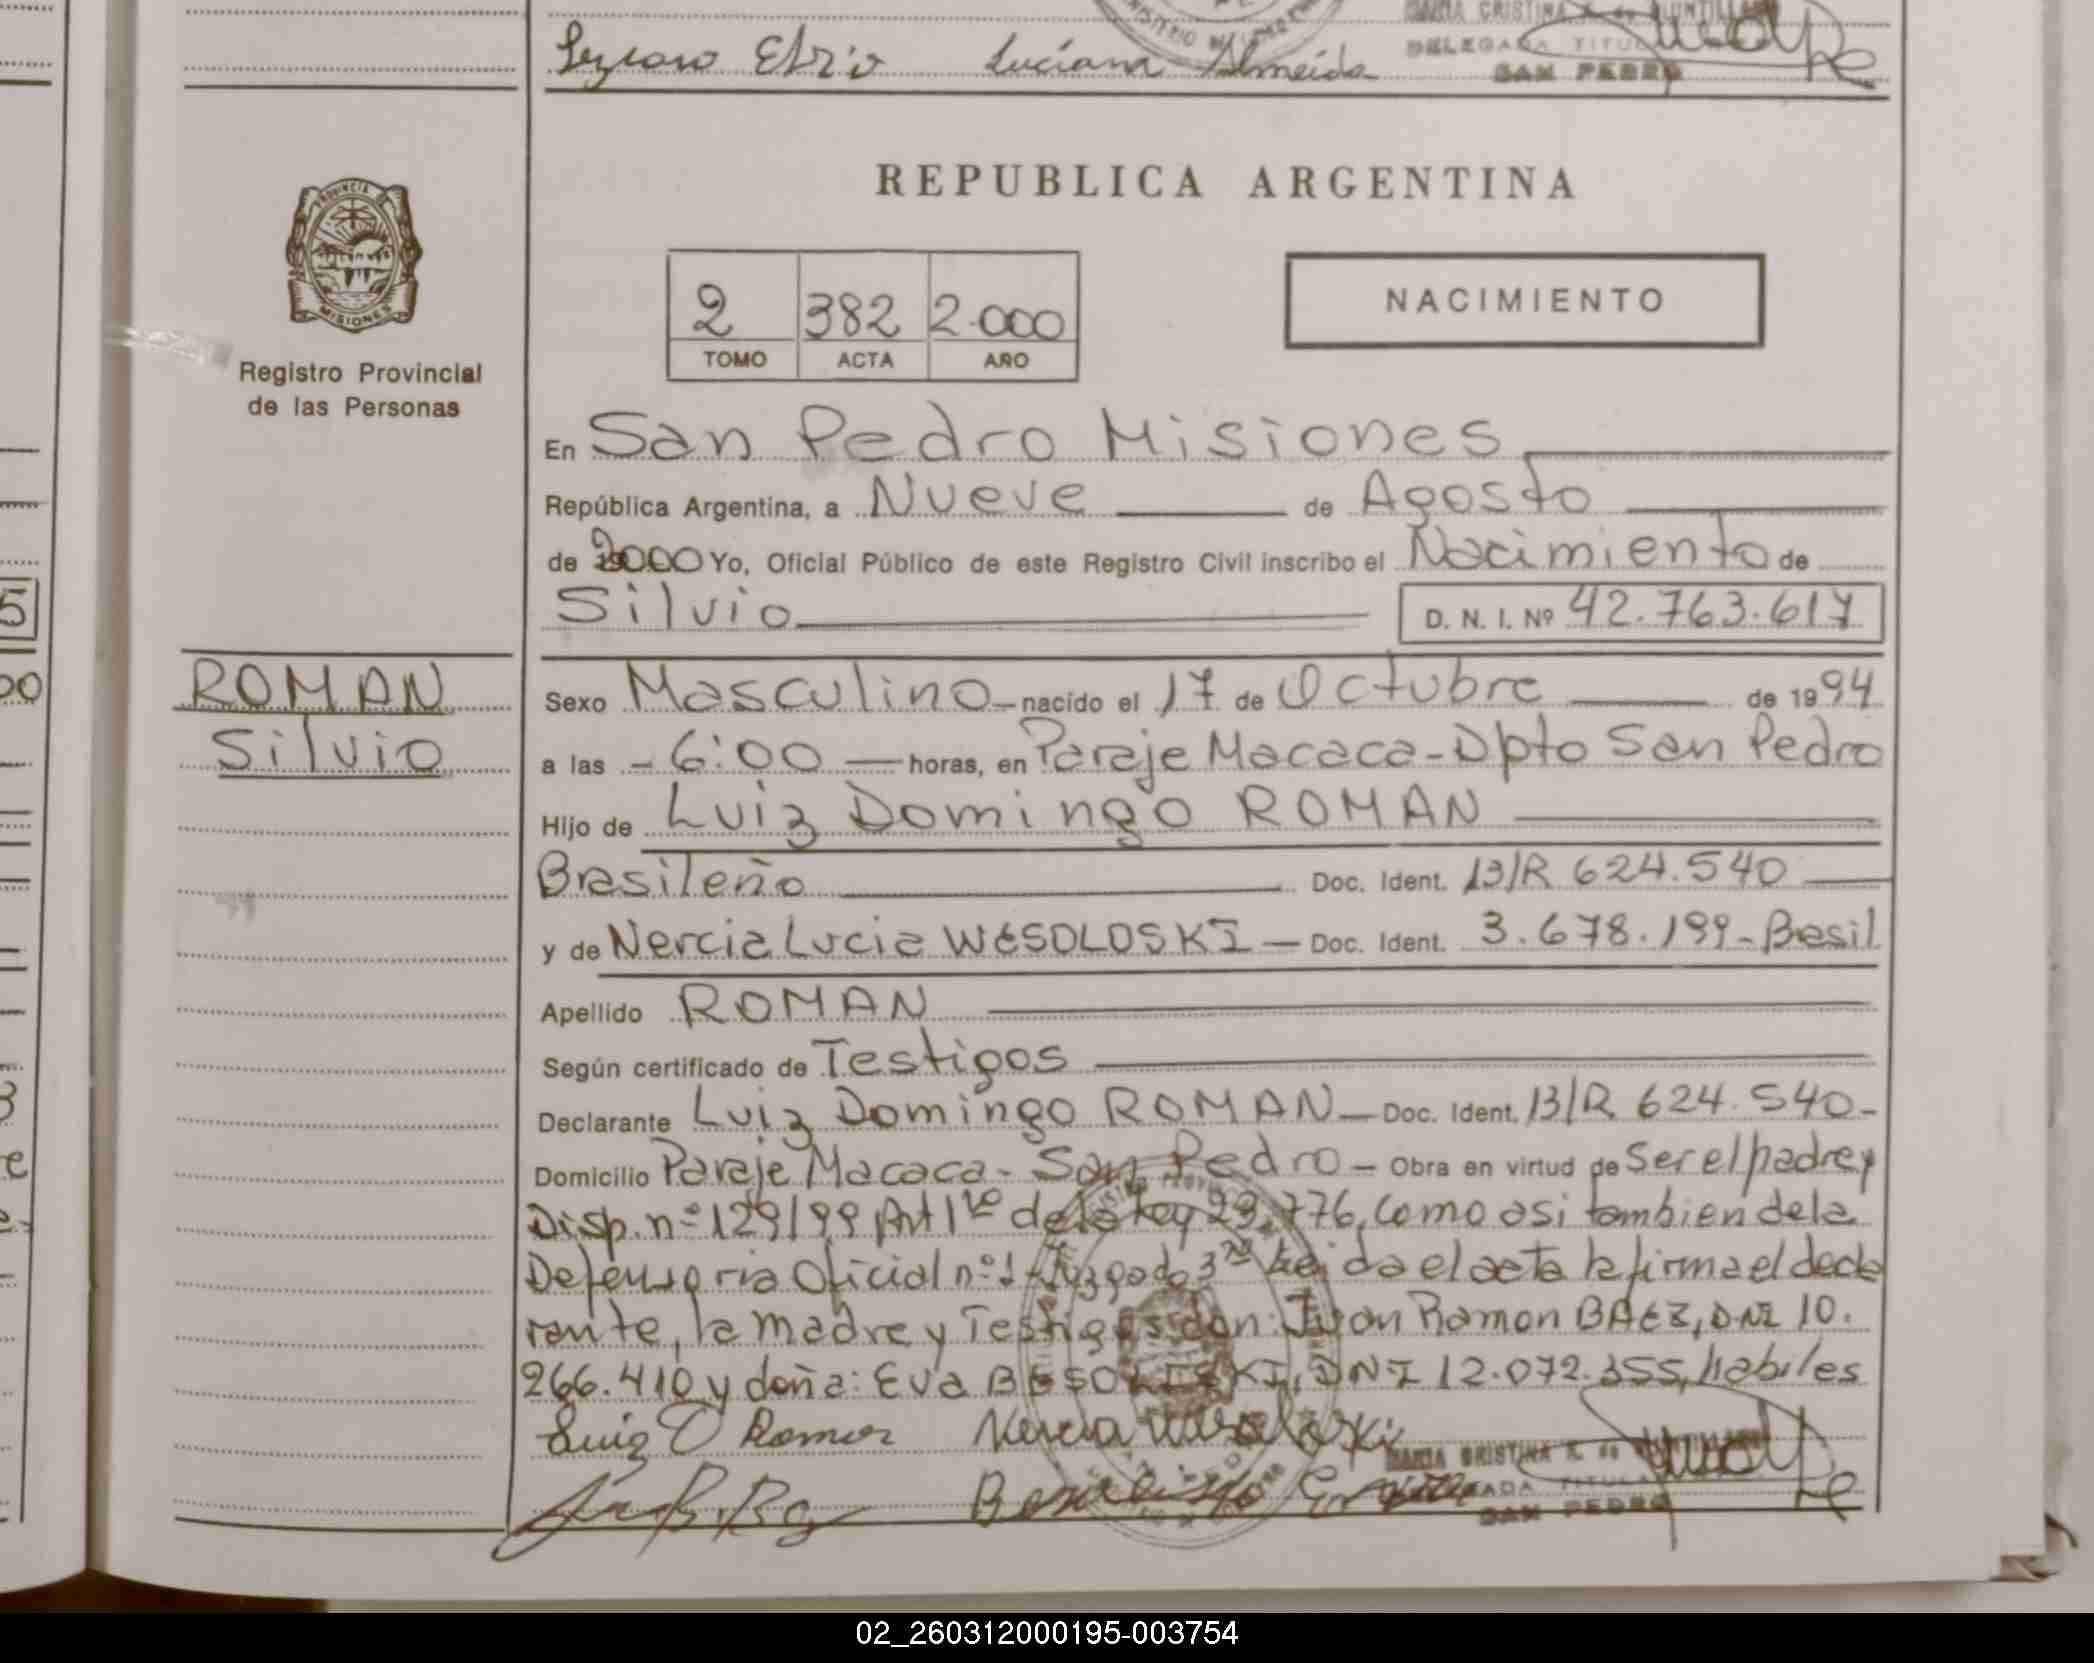 Luciana Almeida
DELEGADA TITULAR
SAN PEDRO
PROVINCIA
MISIONES
Registro Provincial
de las Personas
REPUBLICA ARGENTINA
2 382 2.000
TOMO ACTA AÑO
NACIMIENTO
En San Pedro Misiones
República Argentina, a Nueve de Agosto
de 2000 Yo, Oficial Público de este Registro Civil inscribo el Nacimiento de
Silvio D. N. I. Nº 42.763.617
ROMAN
Silvio
Sexo Masculino nacido el 17 de Octubre de 1994
a las - 6:00 — horas, en Paraje Macaca - Dpto San Pedro
Hijo de Luiz Domingo ROMAN
Brasileño Doc. Ident. 13/R 624.540
y de Nercia Lucia WESOLOSKI — Doc. Ident. 3.678.199 - Brasil
Apellido ROMAN
Según certificado de Testigos
Declarante Luiz Domingo ROMAN — Doc. Ident. 13/R 624.540-
Domicilio Paraje Macaca - San Pedro - Obra en virtud de Ser el padre y
Disp. nº 129/99 Art 1ro de la Ley 23.776, Como asi tambien de la
Defensoria Oficial nº 1 - Juzgado 3ra Leida el acta la firma el decla
rante, la madre y Testigos don: Juan Ramon BAEZ, DNI 10.
266.410 y doña: Eva BESOLESKI, DNI 12.072.355, habiles
Luiz D Roman Nercia
MARIA CRISTINA
SAN PEDRO
02_260312000195-003754